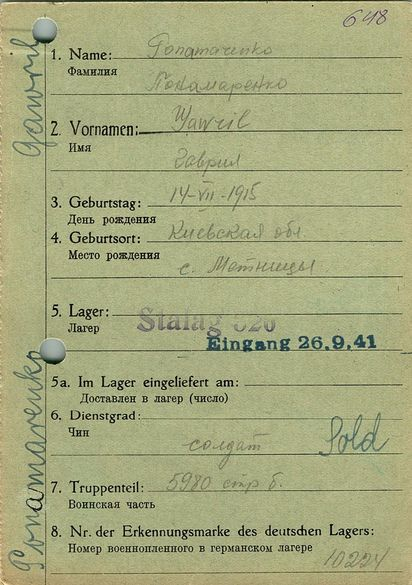 648
1. Name: Ponamarenko
Фамилия Понамаренко
2. Vornamen: Gawril
Имя Гаврил
3. Geburtstag: 14-VII-1915
День рождения
4. Geburtsort: Киевская обл
Место рождения с. Мотницы
5. Lager: Stalag 326
Лагер Eingang 26.9.41
5a. Im Lager eingeliefert am:
Доставлен в лагер (число)
6. Dienstgrad:
Чин солдат Sold
7. Truppenteil: 5980 стр б.
Воинская часть
8. Nr. der Erkennungsmarke des deutschen Lagers:
Номер военнопленного в германском лагере
10224
Ponamarenko Gawril